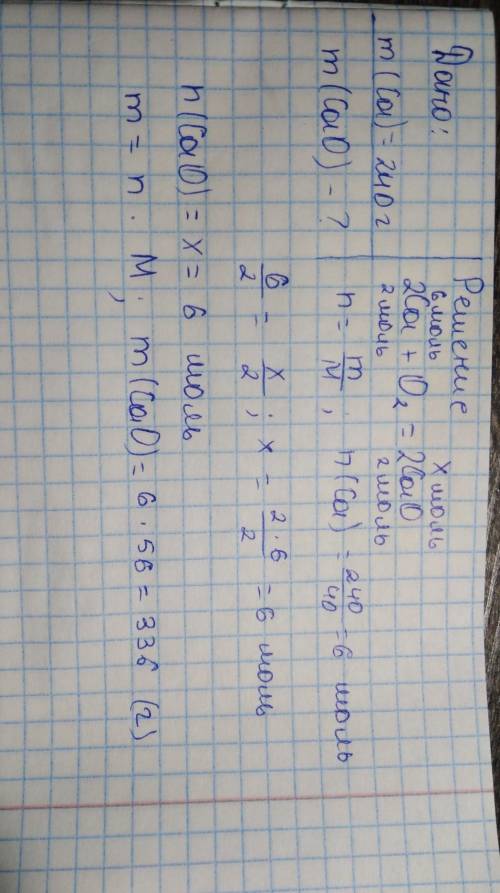 Дано:
m(Ca)=240г
m(CaO)-?
Решение
6 моль x моль
2Ca + O₂ = 2CaO
2 моль 2 моль
n = m/M; n(Ca) = 240/40 = 6 моль
6/2 = x/2; x = 2·6/2 = 6 моль
n(CaO) = x = 6 моль
m = n · M; m(CaO) = 6 · 56 = 336 (г)